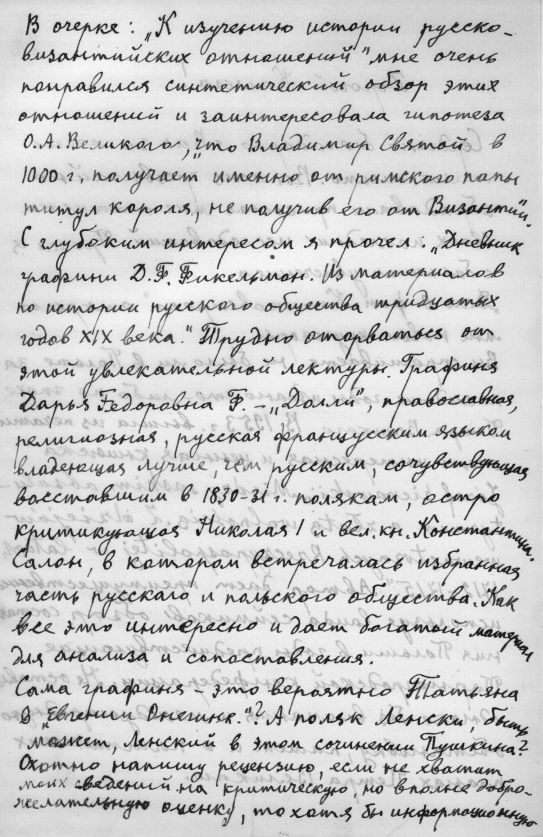 В очерке: „К изучению истории русско-
византийских отношений" мне очень
понравился синтетический обзор этих
отношений и заинтересовала гипотеза
О.А. Великого, „что Владимир Святой в
1000 г. получает именно от римского папы
титул короля, не получив его от Византии".
С глубоким интересом я прочел. „Дневник
графини Д.Ф. Фикельмон. Из материалов
по истории русского общества тридцатых
годов XIX века." Трудно оторваться от
этой увлекательной лектуры. Графиня
Дарья Федоровна Ф. – „Долли", православная,
религиозная, русская французским языком
владеющая лучше, чем русским, сочувствующая
восставшим в 1830-31 г. полякам, остро
критикующая Николая I и вел. кн. Константина.
Салон, в котором встречалась избранная
часть русскаго и польского общества. Как
все это интересно и дает богатой материал
для анализа и сопоставления.
Сама графиня – это вероятно Татьяна
в „Евгении Онегине."? А поляк Ленски, быть
может, Ленский в этом сочинении Пушкина?
Охотно напишу рецензию, если не хватит
моих сведений на критическую, но вполне добро-
желательную оценку, то хотя бы информационную